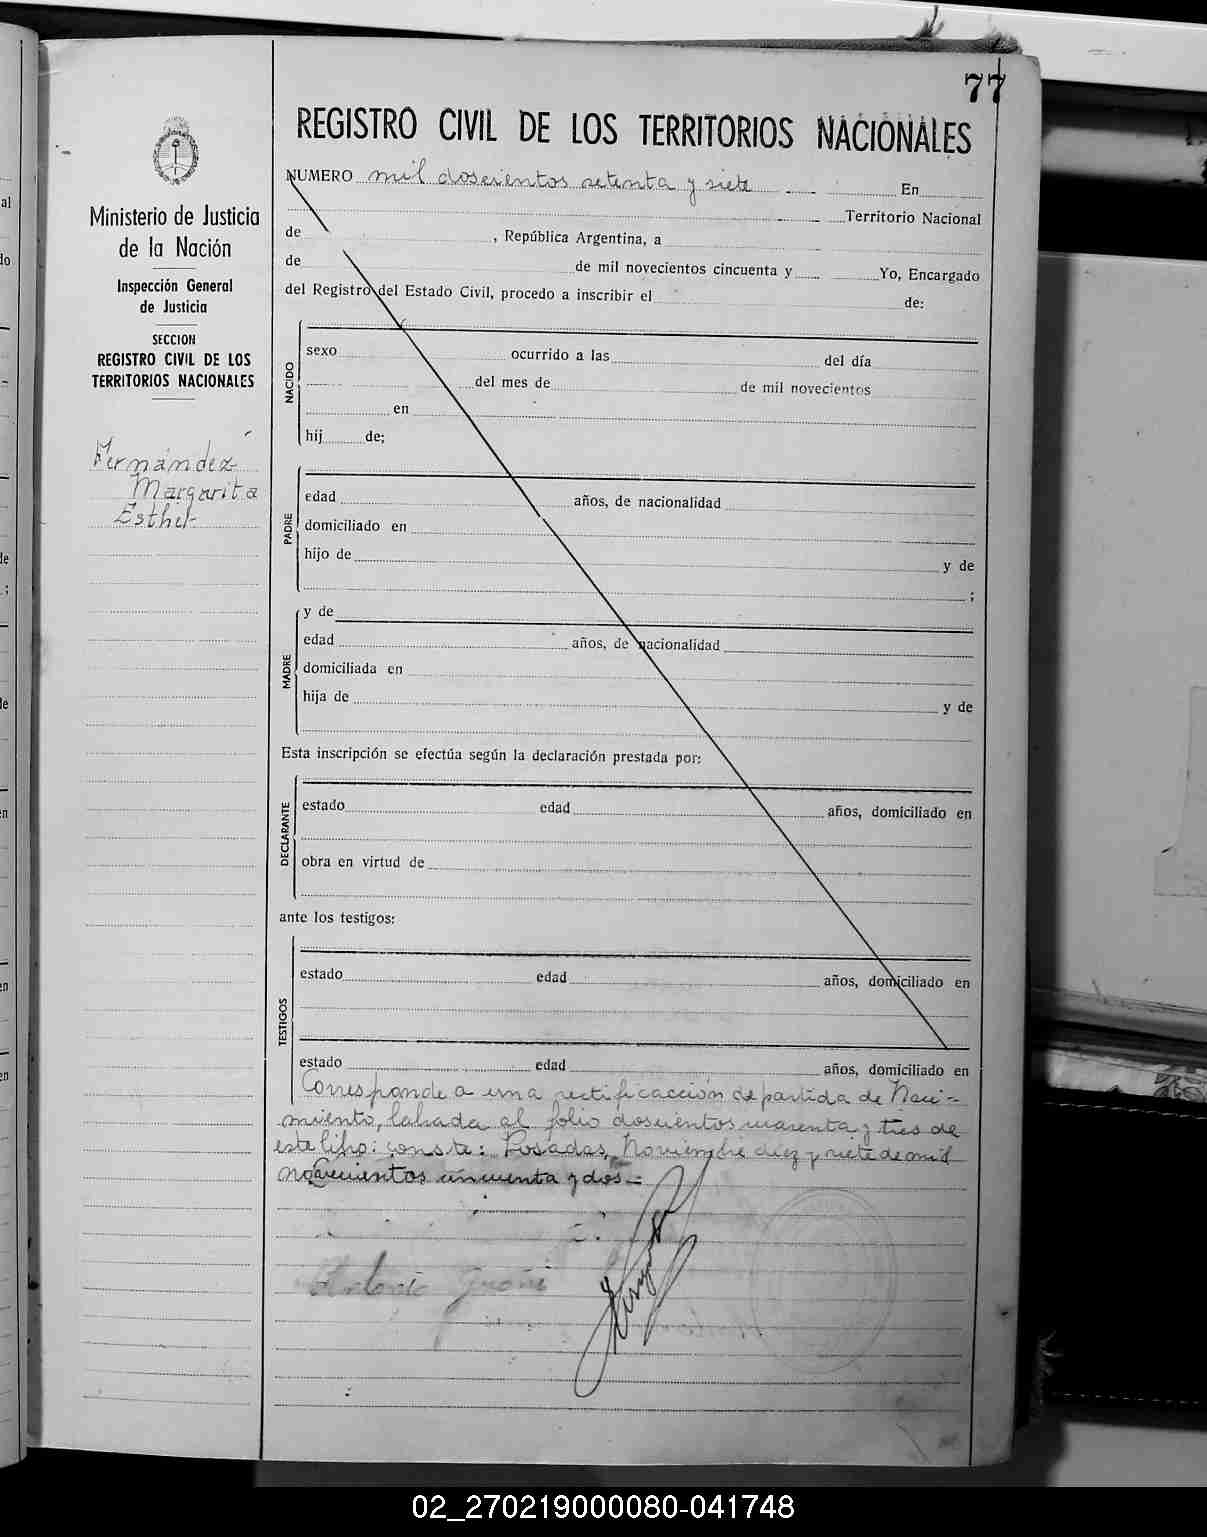 77
REGISTRO CIVIL DE LOS TERRITORIOS NACIONALES
Ministerio de Justicia
de la Nación
Inspección General
de Justicia
SECCION
REGISTRO CIVIL DE LOS
TERRITORIOS NACIONALES
Fernández
Margarita
Esther
NUMERO mil doscientos setenta y siete En
Territorio Nacional
de , República Argentina, a
de de mil novecientos cincuenta y Yo, Encargado
del Registro del Estado Civil, procedo a inscribir el de:
NACIDO
sexo ocurrido a las del día
del mes de de mil novecientos
en
hij de;
PADRE
edad años, de nacionalidad
domiciliado en
hijo de y de
;
MADRE
y de
edad años, de nacionalidad
domiciliada en
hija de y de
Esta inscripción se efectúa según la declaración prestada por:
DECLARANTE
estado edad años, domiciliado en
obra en virtud de
ante los testigos:
TESTIGOS
estado edad años, domiciliado en
estado edad años, domiciliado en
Corresponde a una rectificacción de partida de Naci-
miento, labrada al folio doscientos cuarenta y tres de
este libro: conste: Posadas, Noviembre diez y siete de mil
novecientos cincuenta y dos.-
Antonio
02_270219000080-041748